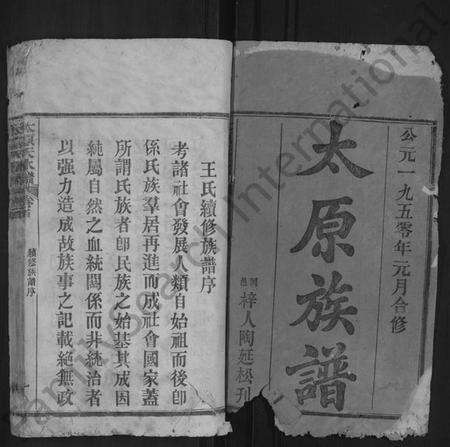 公元一九五零年元月合修
太原族譜
梓人陶延松刊
王氏續修族譜序
考諸社會發展人類自始祖而後卽
係氏族羣居再進而成社會國家蓋
所謂氏族者卽民族之始基其成因
純屬自然之血統關係而非統治者
以強力造成故族事之記載絕無政
續修族譜序
FamilySearch International